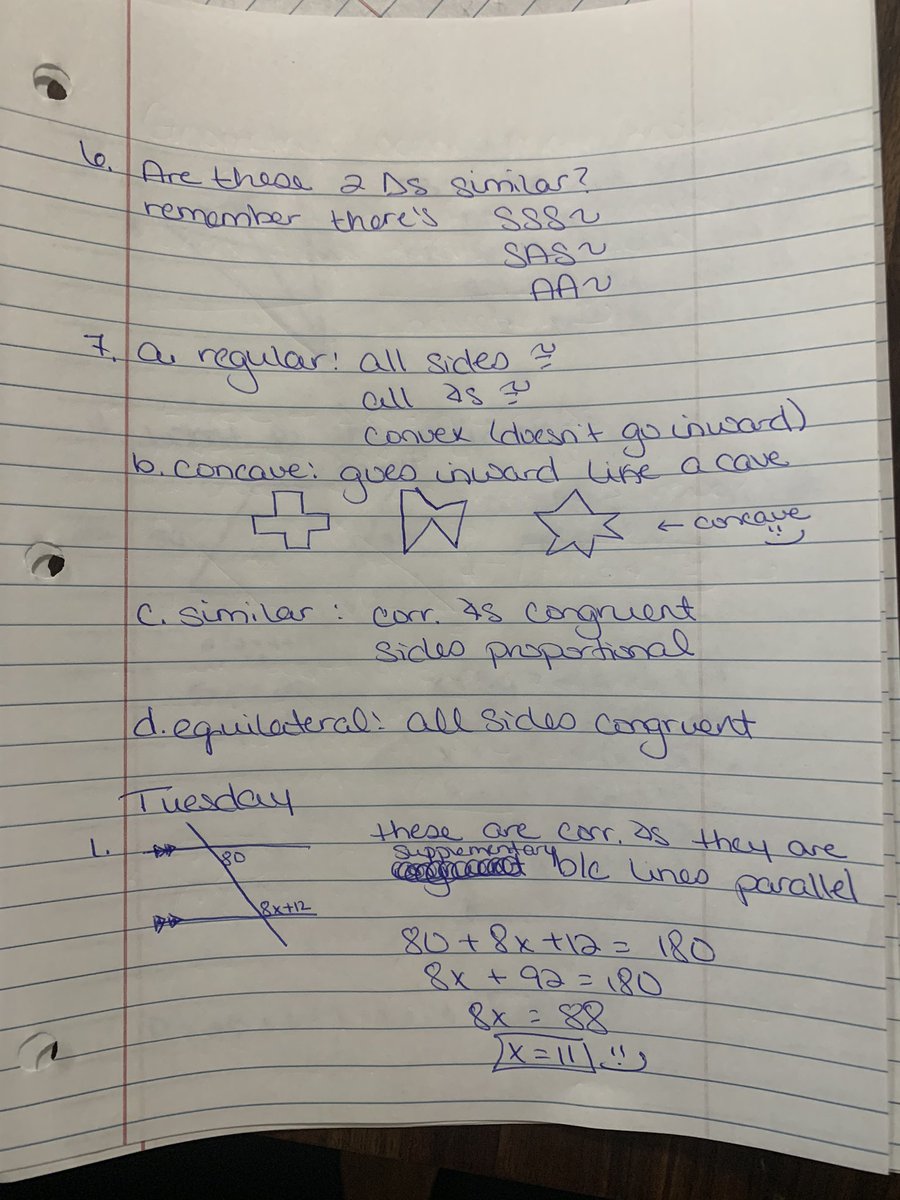 6. Are these 2 Δs similar?
remember there's SSS~
SAS~
AA~
7. a. regular: all sides ≅
all ∡s ≅
convex (doesn't go inward)
b. concave: goes inward like a cave
← concave
c. similar : corr. ∡s congruent
sides proportional
d. equilateral: all sides congruent
Tuesday
1. these are corr. ∡s they are
supplementary b/c lines parallel
80
8x+12
80 + 8x + 12 = 180
8x + 92 = 180
8x = 88
x = 11